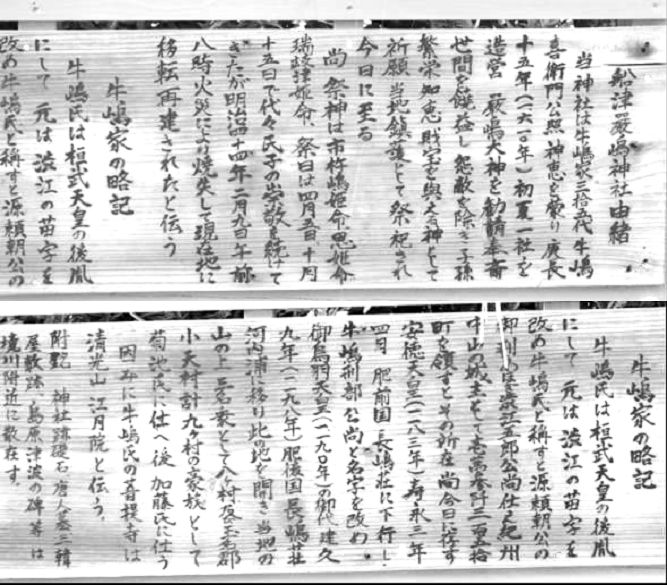 船津嚴嶋神社由緒
当神社は牛嶋家三拾五代 牛嶋
喜衛門公照 神恵を蒙り 慶長
十五年(一六一〇年)初夏 一社を
造営 嚴嶋大神を勧請奉斎
世間を饒益し 怨敵を除き 子孫
繁栄 知恵 財宝を與える神として
祈願 当地鎮護として 祭祀され
今日に至る
尚 祭神は市杵嶋姫命、思姫命
瑞津姫命、祭日は四月五日、十月
十五日で代々氏子の崇敬を続けて
きたが明治四十四年二月九日午前
八時火災により焼失して現在地に
移転再建されたと伝う
牛嶋家の略記
牛嶋氏は桓武天皇の後胤
にして 元は澁江の苗字を
改め牛嶋氏と稱すと源頼朝公の
牛嶋家の略記
牛嶋氏は桓武天皇の後胤
にして 元は澁江の苗字を
改め牛嶋氏と稱すと源頼朝公の
澁江五郎公尚仕え紀州
中山の城主として壱萬参阡三百五拾
町を領すとその所在 尚今日に存す
安徳天皇(一一八三年)寿永三年
四月 肥前国長嶋社に下行し
牛嶋刑部公尚と名字を改め、
御鳥羽天皇(一一九〇年)の御代 建久
九年(一一九八年)肥後国長嶋荘
河内浦に移り此の地を開き 当地の
山の上 三名衆として八ヶ村 玉名郡
小天村計九ヶ村の豪族として
菊池氏に仕へ後 加藤氏に仕う
因みに牛嶋氏の菩提寺は
清光山 江月院と伝う。
附記 神社跡礎石 唐人墓 三韓
屋敷跡 島原津波の碑 等は
境川附近に散在す。